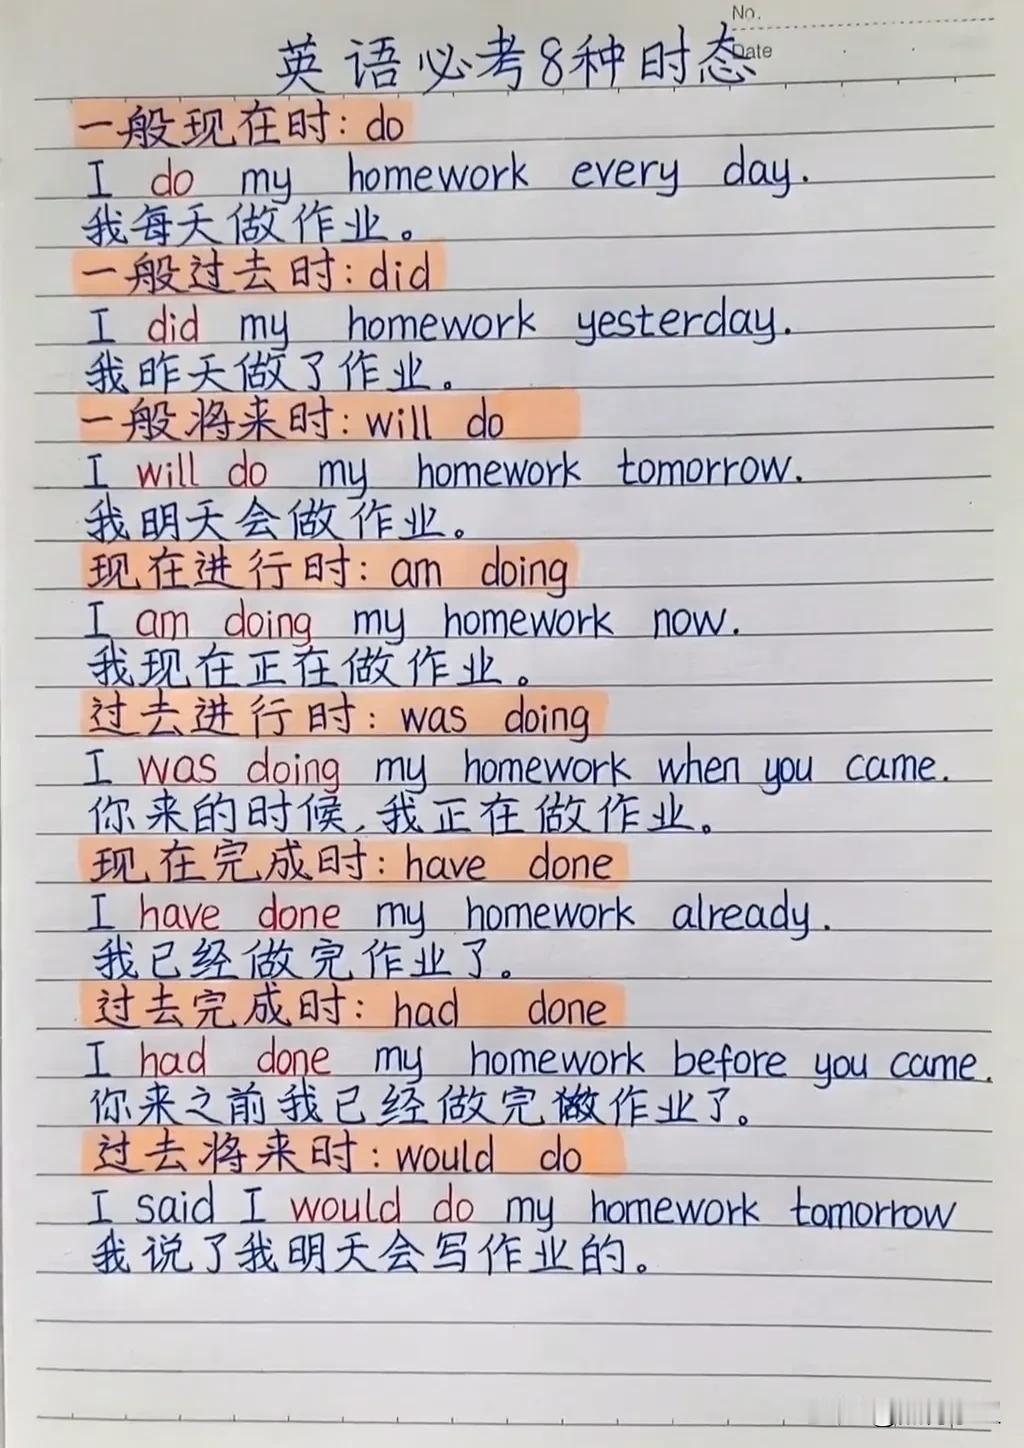 No.
Date
英语必考8种时态
一般现在时: do
I do my homework every day.
我每天做作业。
一般过去时: did
I did my homework yesterday.
我昨天做了作业。
一般将来时: will do
I will do my homework tomorrow.
我明天会做作业。
现在进行时: am doing
I am doing my homework now.
我现在正在做作业。
过去进行时: was doing
I was doing my homework when you came.
你来的时候,我正在做作业。
现在完成时: have done
I have done my homework already.
我已经做完作业了。
过去完成时: had done
I had done my homework before you came.
你来之前我已经做完做作业了。
过去将来时: would do
I said I would do my homework tomorrow
我说了我明天会写作业的。